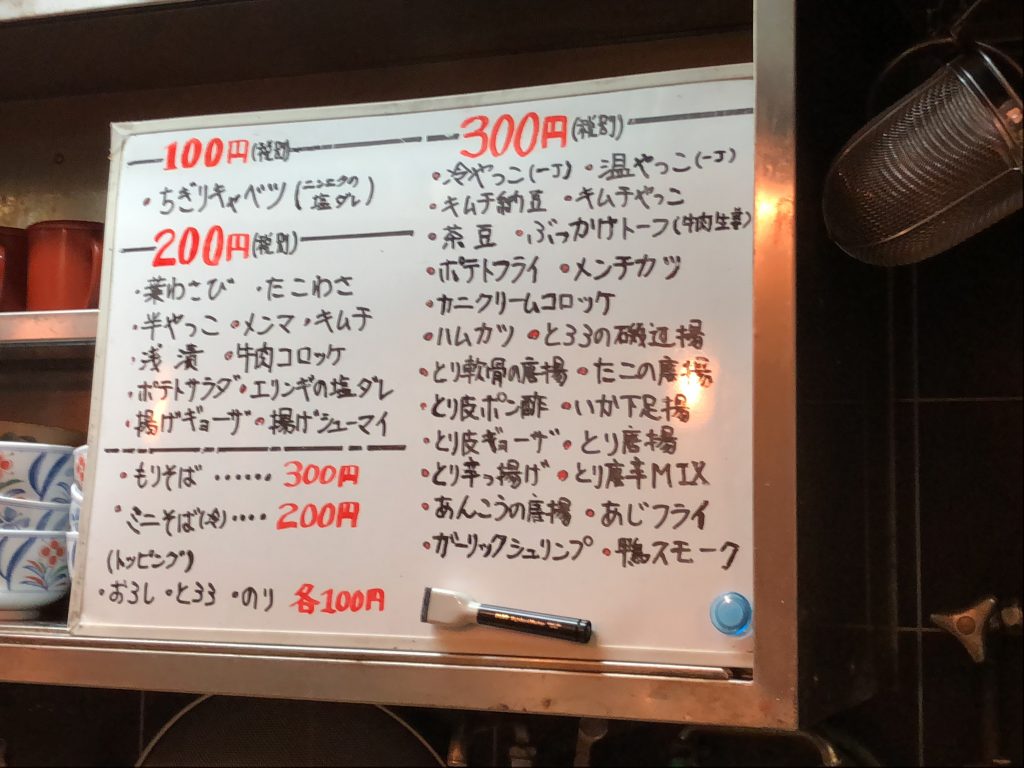 100円(税別)
・ちぎりキャベツ(ニンニクの塩ダレ)
200円(税別)
・葉わさび ・たこわさ
・半やっこ ・メンマ ・キムチ
・浅漬 ・牛肉コロッケ
・ポテトサラダ ・エリンギの塩ダレ
・揚げギョーザ ・揚げシューマイ
・もりそば ‥‥‥ 300円
・ミニそば(冷)‥‥ 200円
(トッピング)
・おろし ・とろろ ・のり 各100円
300円(税別)
・冷やっこ(一丁) ・温やっこ(一丁)
・キムチ納豆 ・キムチやっこ
・茶豆 ・ぶっかけトーフ(牛肉生姜)
・ポテトフライ ・メンチカツ
・カニクリームコロッケ
・ハムカツ ・とろろの磯辺揚
・とり軟骨の唐揚 ・たこの唐揚
・とり皮ポン酢 ・いか下足揚
・とり皮ギョーザ ・とり唐揚
・とり辛っ揚げ ・とり唐辛MIX
・あんこうの唐揚 ・あじフライ
・ガーリックシュリンプ ・鴨スモーク